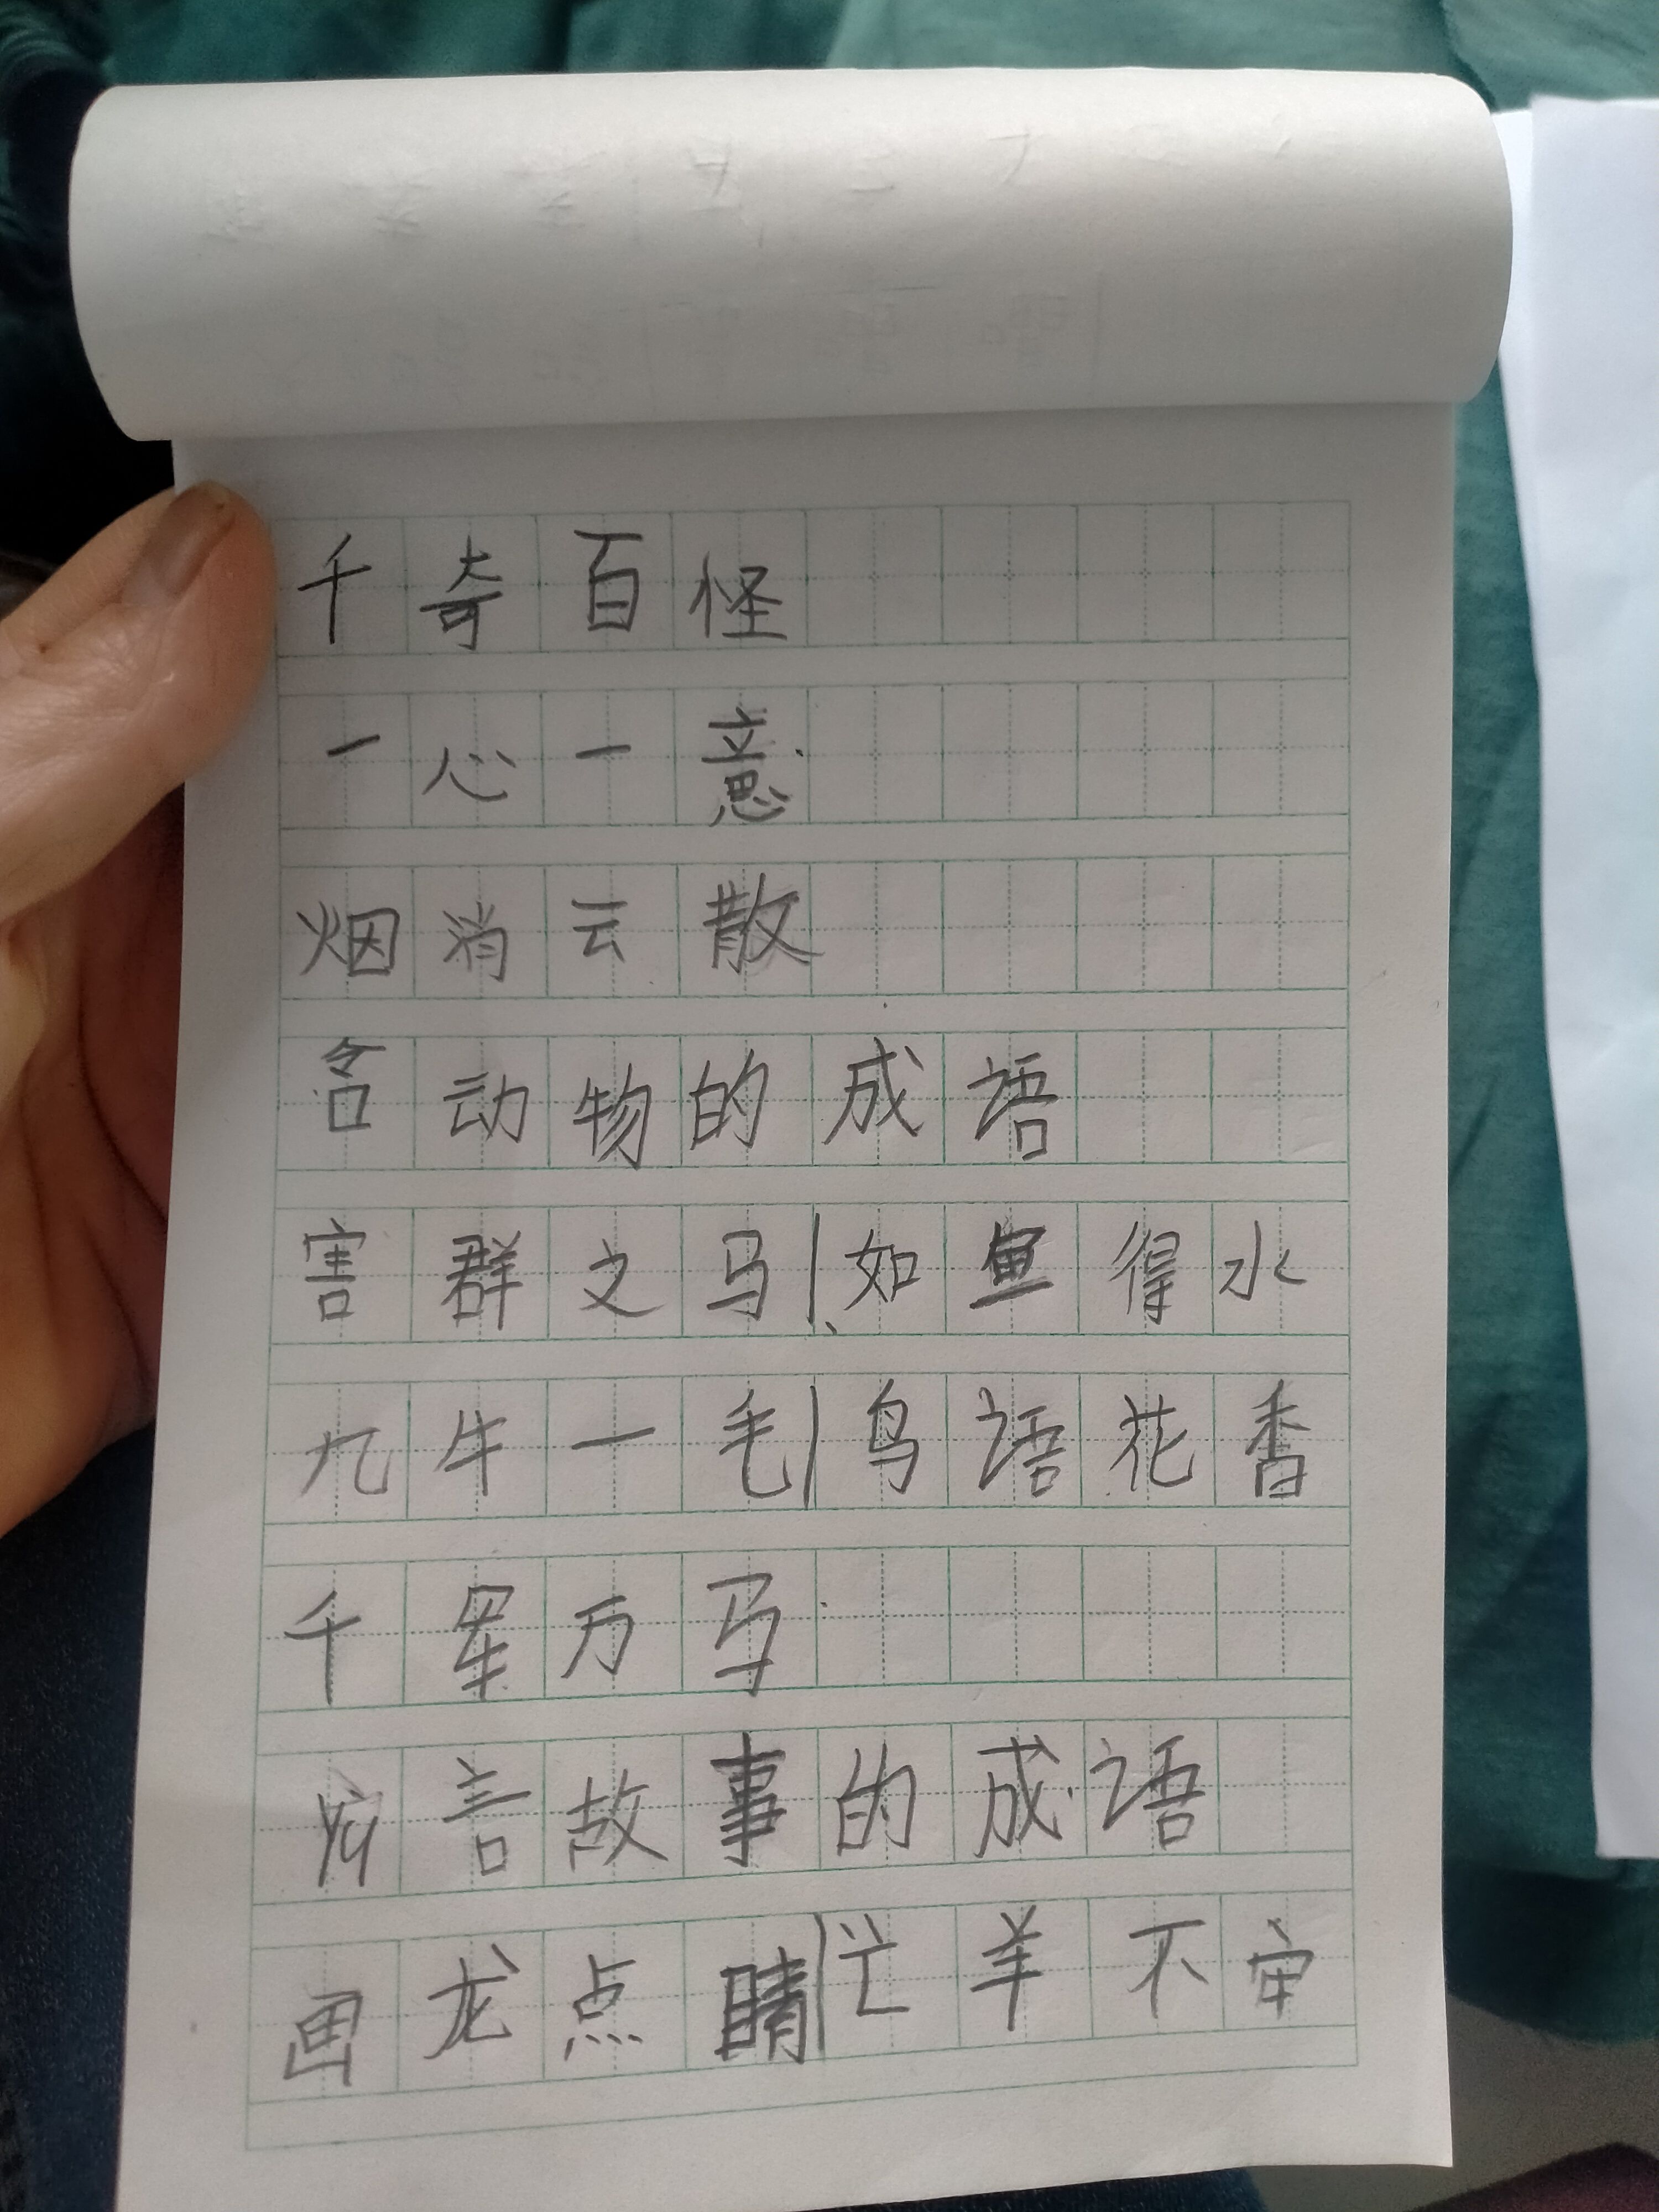 千奇百怪
一心一意
烟消云散
含动物的成语
害群之马|如鱼得水
九牛一毛|鸟语花香
千军万马
言故事的成语
画龙点睛|亡羊不牢